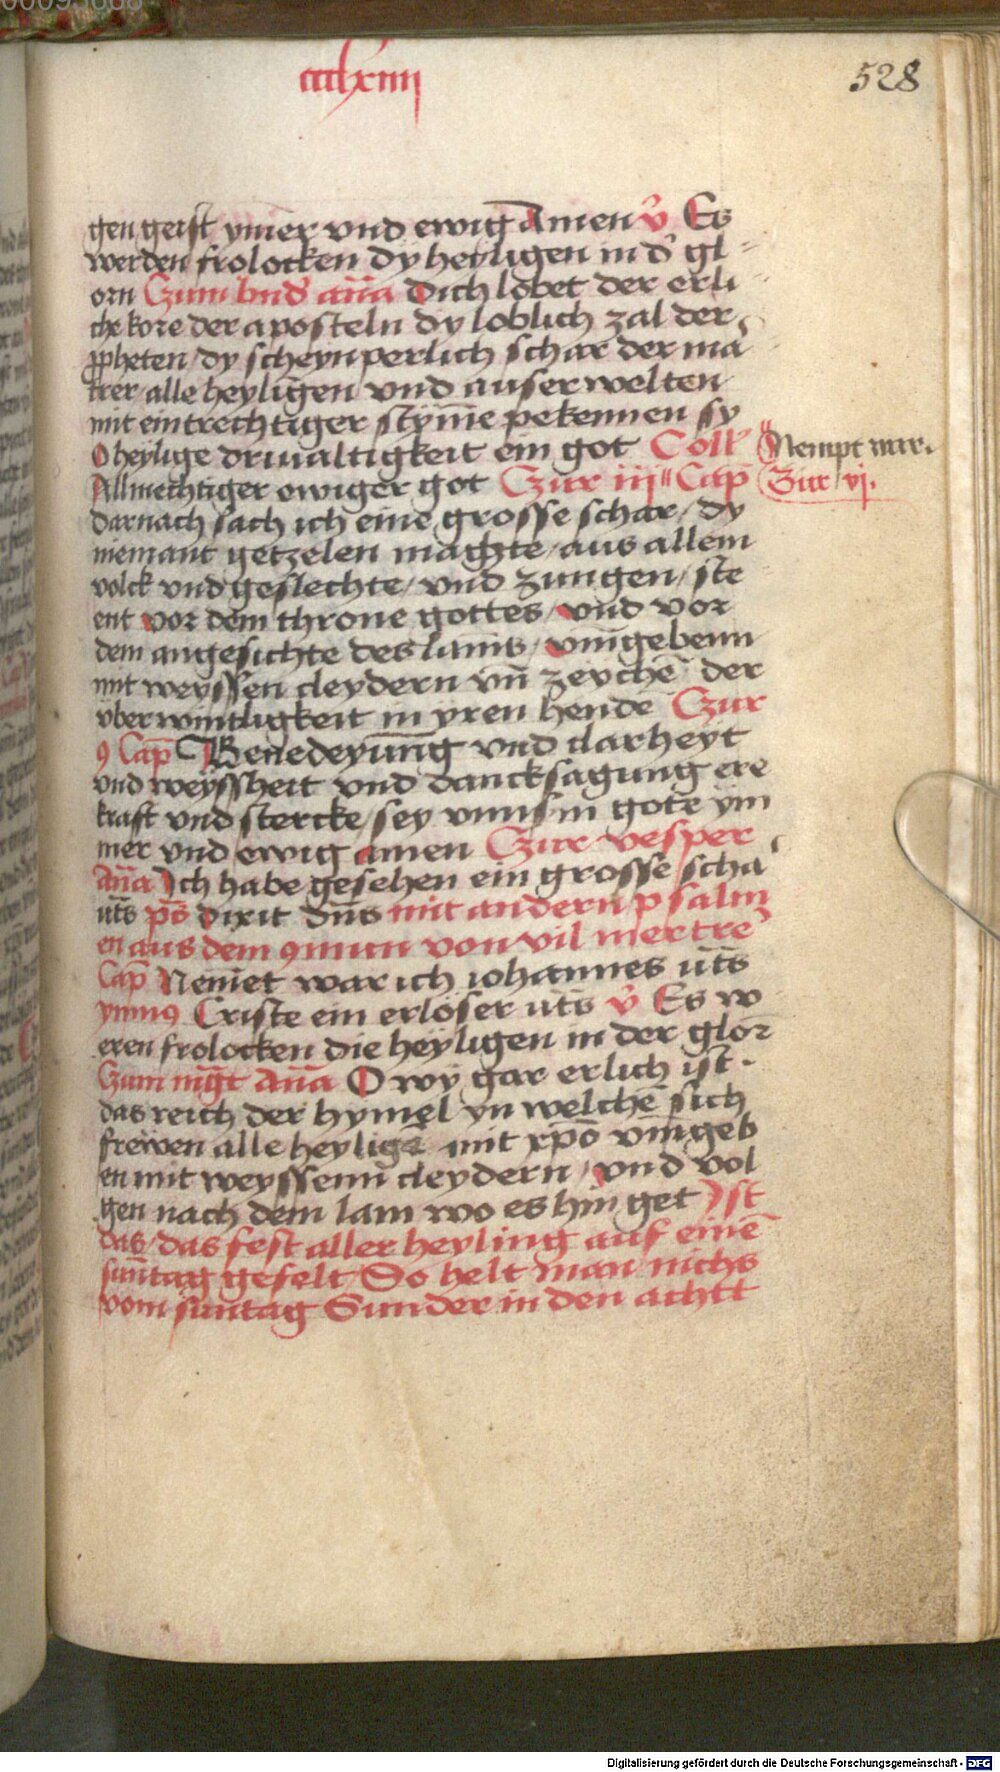 00093668
ccclxiiij
528
gen geist ymer vnd ewig̅ Amen v̉ Es
werden frolocken dy heyligen in d̉ gl
orn Czum bnd̉ an̅a Dich lobet der erli
che kore der aposteln dy loblich zal der
ꝓpheten / dy scheynperlich schar der ma
trer / alle heyligen vnd auserwelten
mit eintrechtiger stym̅e pekennen sy
O heylige driualtigkeit ein got Coll̉
Nempt war.
Allmechtiger ewiger got Czur iij Cap̅
Zur vj.
darnach sach ich eine grosse schar / dy
niemant getzelen machte / aus allem
volck vnd geslechte / vnd zungen / ste
ent vor dem throne gottes / vnd vor
dem angesichte des lams / vmgebenn
mit weyssen cleydern vn̅ zeyche̅ der
vberwintligkeit in yren hende Czur
9 Cap̅ Benedeyung vnd clarheyt
vnd weyssheit vnd dancksagung ere
kraft vnd stercke / sey vnnsm gote ym
mer vnd ewig amen Czur vesper
An̅a Ich habe gesehen ein grosse scha
ut̅s ps̅ Dixit dn̅s mit andern psalm
en aus dem 9mun von vil mertre
Cap̅ Nemet war ich iohannes ut̅s
ymn9 Criste ein erloser ut̅s v̉ Es w
eren frolocken die heyligen in der glor
Czum mg̅t An̅a O wy gar erlich ist
das reich der hymel yn welche̅ sich
frewen alle heylige mit xp̅o vmgeb
en mit weyssenn cleydern / vnd vol
gen nach dem lam wo es hin get Ist
das / das fest aller heyling auf eine̅
sun̅tag gefelt / So helt man nichs
vom suntag Sunder in den achtt
Digitalisierung gefördert durch die Deutsche Forschungsgemeinschaft - DFG